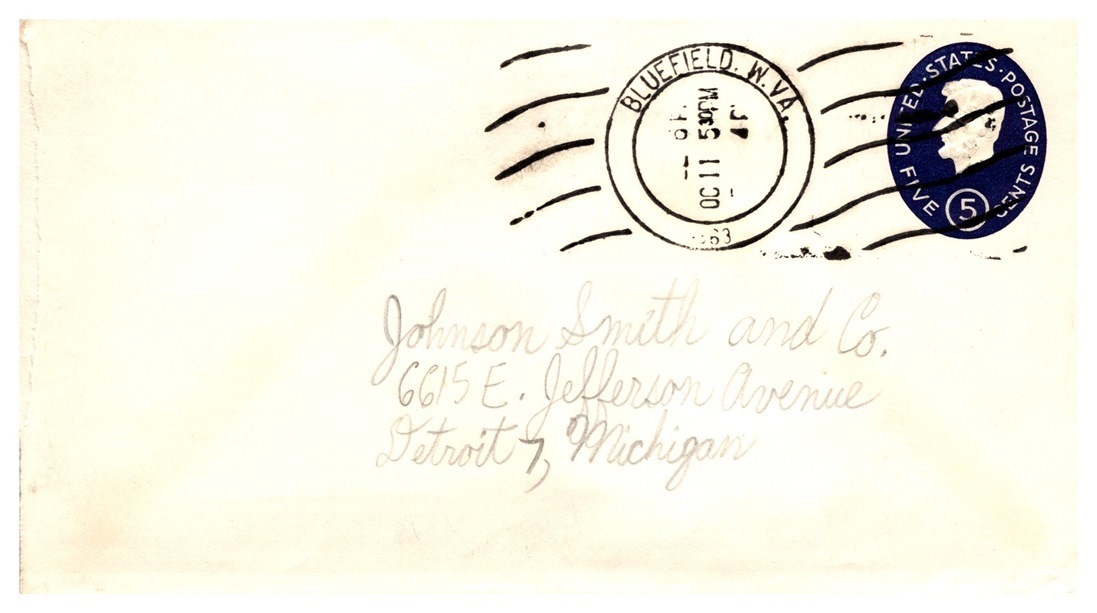 BLUEFIELD. W.VA.
OC 11 530PM
63
UNITED·STATES·POSTAGE
FIVE 5 CENTS
Johnson Smith and Co.
6615 E. Jefferson Avenue
Detroit 7, Michigan